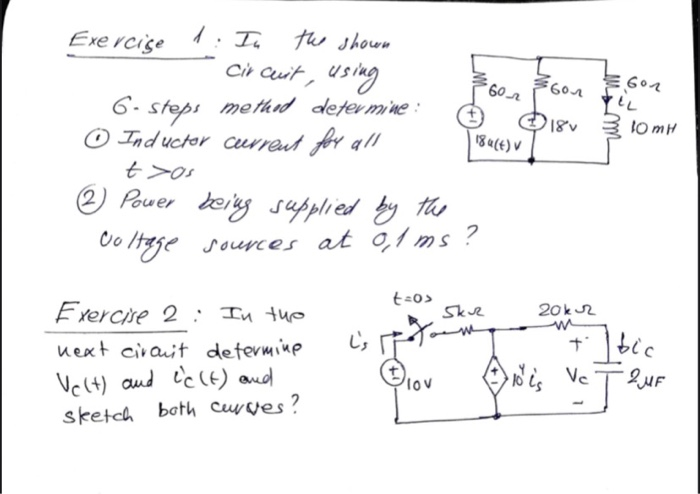 Exercise 1 : In the shown
circuit, using
6-steps method determine:
① Inductor current for all
t >0s
② Power being supplied by the
voltage sources at 0,1 ms ?
60Ω
60Ω
60Ω
iL
10 mH
18V
18u(t) V
Exercise 2 : In the
next circuit determine
Vc(t) and ic(t) and
sketch both curves?
t=0s
5kΩ
20kΩ
is
10V
10⁴ is
+
Vc
-
ic
2μF